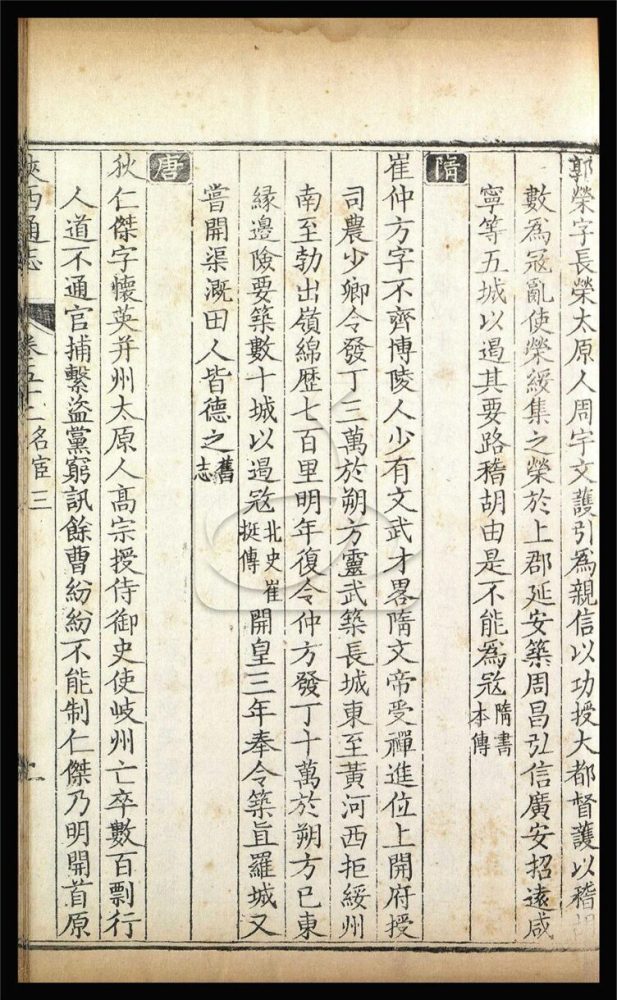 郭榮字長榮太原人周宇文護引為親信以功授大都督護以稽胡
數為冦亂使榮綏集之榮於上郡延安築周昌弘信廣安招遠咸
寧等五城以遏其要路稽胡由是不能為冦隋書本傳
隋
崔仲方字不齊博陵人少有文武才畧隋文帝受禪進位上開府授
司農少卿令發丁三萬於朔方靈武築長城東至黃河西拒綏州
南至勃出嶺綿歴七百里明年復令仲方發丁十萬於朔方已東
緣邊險要築數十城以遏冦北史崔挺傳開皇三年奉令築直羅城又
嘗開渠溉田人皆德之舊志
唐
狄仁傑字懷英并州太原人高宗授侍御史使岐州亡卒數百剽行
人道不通官捕繫盜黨窮訊餘曹紛紛不能制仁傑乃明開首原
陝西通志 卷五十二 名宦三